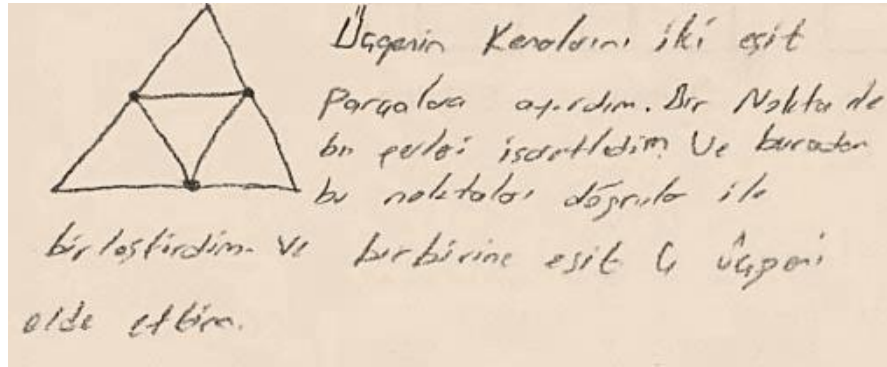 Üçgenin Kenarlarını iki eşit
Parçalara ayırdım. Bir Nokta ile
bu yerleri işaretledim Ve buradan
bu noktaları doğrular ile
birleştirdim. Ve birbirine eşit 4 üçgeni
elde ettim.